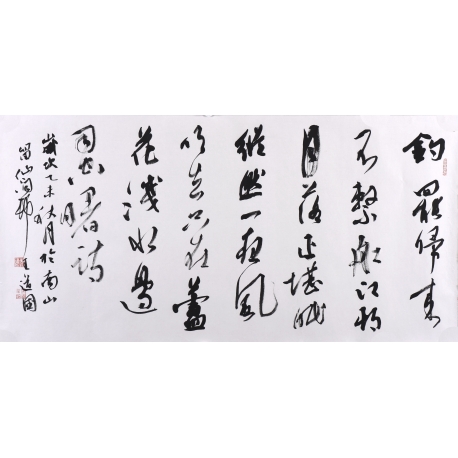 釣罷歸來
不繫船江村
月落正堪眠
縱然一夜風
吹去只在蘆
花淺水邊
司空曙詩
歲次乙未月於南山